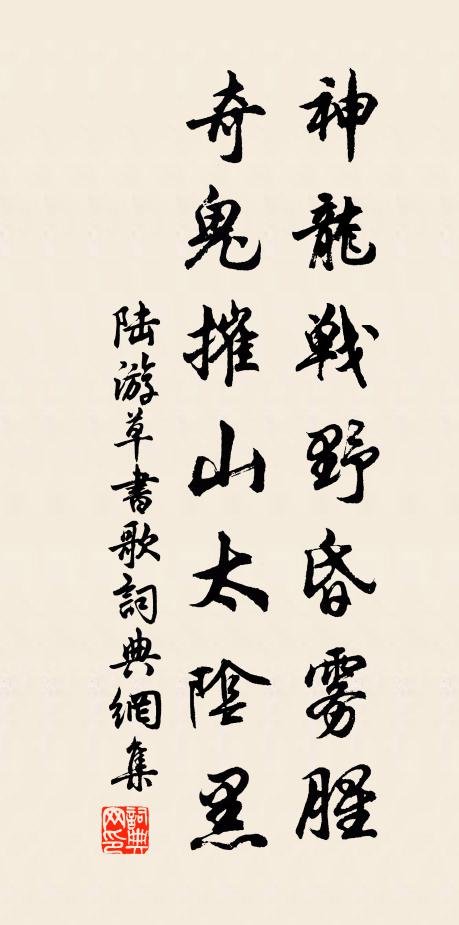 神龍戰野昏霧腥
奇鬼摧山太陰黑
陆游草書歌詞典網集
詞典网印